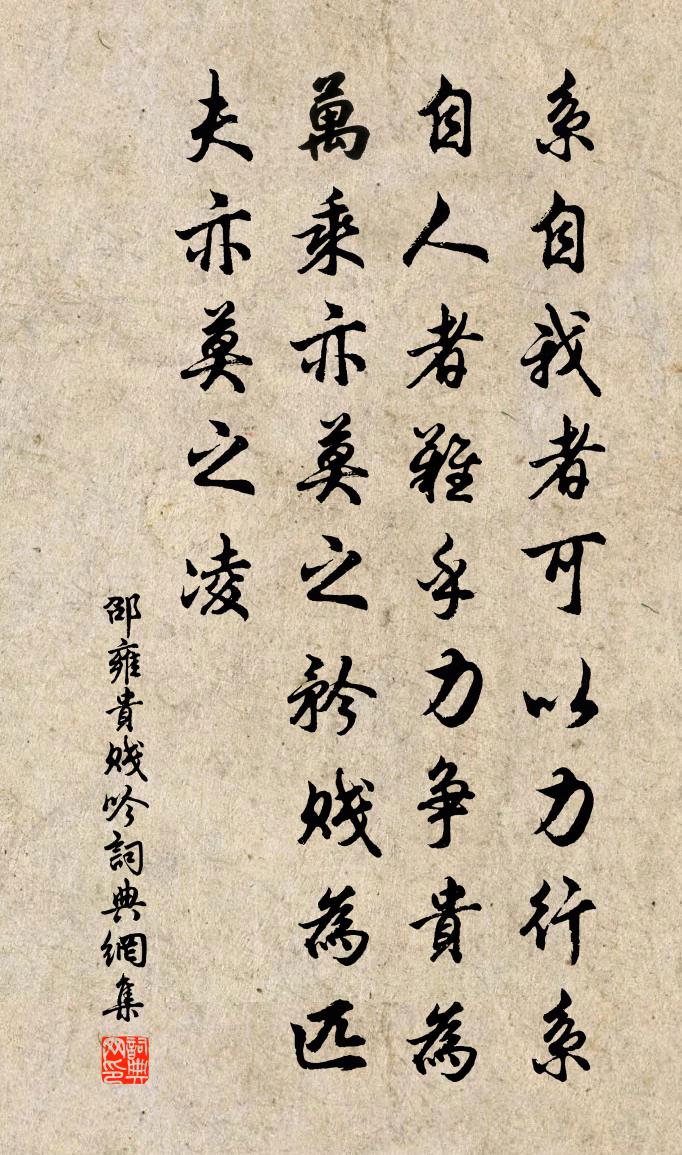 系自我者可以力行系
自人者難乎力争貴為
萬乘亦莫之矜賤為匹
夫亦莫之凌
邵雍貴賤吟詞典網集
詞典网印